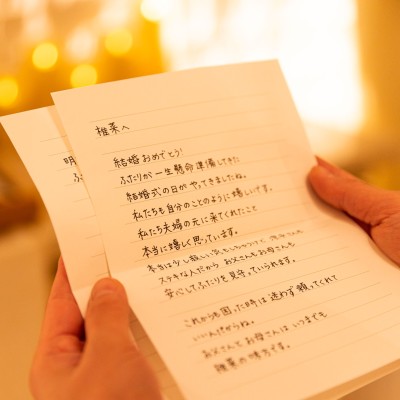 椎菜へ
結婚おめでとう!
ふたりが一生懸命準備してきた
結婚式の日がやってきましたね。
私たちも自分のことのように嬉しいです。
私たち夫婦の元に来てくれたこと
本当に嬉しく思っています。
本当は少し寂しい気もしちゃうけど、
ステキな人だから お父さんもお母さんも
安心してふたりを見守っていられます。
これからも困った時は迷わず頼ってくれて
いいんだからね。
お父さんとお母さんはいつまでも
椎菜の味方です。
明